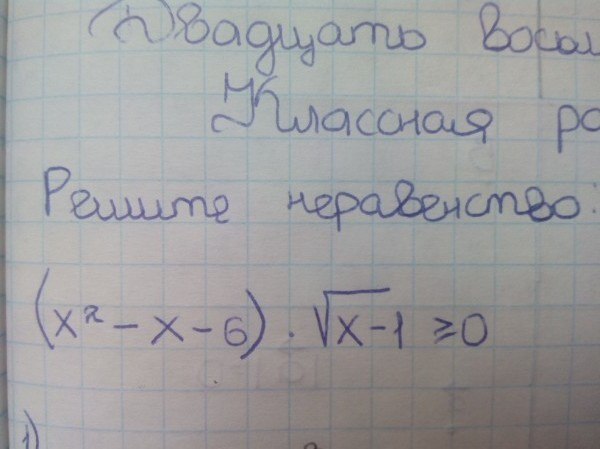 Двадцать восьм
Классная ра
Решите неравенство:
(x² - x - 6) · √x-1 ≥ 0
1)